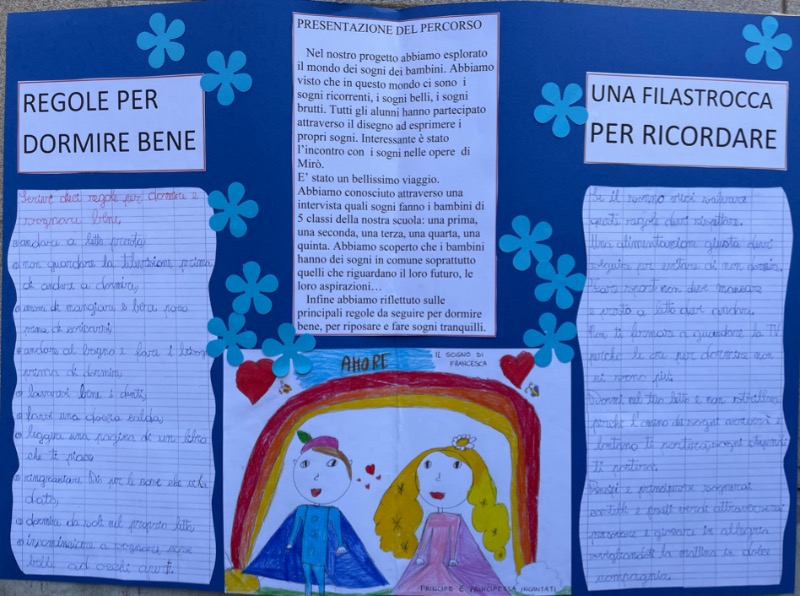 REGOLE PER
DORMIRE BENE
Scrivi dieci regole per dormire e
sognare bene.
andare a letto presto,
non guardare la televisione prima
di andare a dormire,
di mangiare e bere
prima di
andare al bagno e fare i
prima di dormire
lavarsi bene i denti,
fare una doccia calda,
leggere una pagina di un libro
che ti piace
ringraziare per le cose che
dato,
dormire da soli nel proprio letto
incominciare a sognare cose
belle ad occhi
PRESENTAZIONE DEL PERCORSO
Nel nostro progetto abbiamo esplorato
il mondo dei sogni dei bambini. Abbiamo
visto che in questo mondo ci sono i
sogni ricorrenti, i sogni belli, i sogni
brutti. Tutti gli alunni hanno partecipato
attraverso il disegno ad esprimere i
propri sogni. Interessante è stato
l'incontro con i sogni nelle opere di
Mirò.
E' stato un bellissimo viaggio.
Abbiamo conosciuto attraverso una
intervista quali sogni fanno i bambini di
5 classi della nostra scuola: una prima,
una seconda, una terza, una quarta, una
quinta. Abbiamo scoperto che i bambini
hanno dei sogni in comune soprattutto
quelli che riguardano il loro futuro, le
loro aspirazioni…
Infine abbiamo riflettuto sulle
principali regole da seguire per dormire
bene, per riposare e fare sogni tranquilli.
AMORE
IL SOGNO DI
FRANCESCA
PRINCIPE E PRINCIPESSA INCANTATI
UNA FILASTROCCA
PER RICORDARE
Se il sonno vuoi salvare
questi regole devi rispettare.
Una alimentazione giusta devi
seguire per evitare di non dormire.
sport non deve mancare
e presto a letto devi andare.
Non ti fermare a guardare la TV
perché le ore per dormire non
ci sono più.
Dormi nel tuo letto e non
perché l'omino dei sogni arriverà e
lontano ti porterà, sogni stupendi
ti porterà.
Principi e principesse sognerai
castelli e prati verdi attraverserai
e giocare in allegria
svegliandoti la mattina in dolce
compagnia.